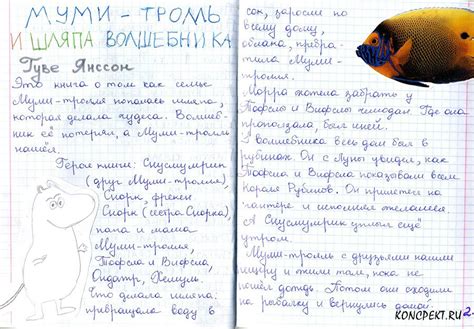 МУМИ - ТРОЛЛЬ
И ШЛЯПА ВОЛШЕБНИКА
Туве Янссон
Это книга о том как семье
Муми-тролля попалась шляпа,
которая делала чудеса. Волшеб-
ник её потерял, а Муми-тролль
нашёл.
Герои книги: Снусмумрик
(друг Муми-тролля),
Снорк, фрекен
Снорк (сестра Снорка),
папа и мама
Муми-тролля,
Тофсла и Вифсла,
Ондатр, Хемуль.
Что делала шляпа:
превращала воду в
сок, заросли по
всему дому,
облака, превра-
тила Муми-
тролля.
Морра хотела забрать у
Тофслы и Вифслы чемодан. Где она
проползала, был иней.
У волшебника весь дом был в
рубинах. Он с Луны увидел, как
Тофсла и Вифсла показывали всем
Короля Рубинов. Он прилетел на
пантере и исполнил желания.
А Снусмумрик ушёл ещё
утром.
Муми-тролль с друзьями нашли
пещеру и жили там, пока не
пошёл дождь. Потом они сходили
на рыбалку и вернулись домой.
КОНСПЕКТ.RU